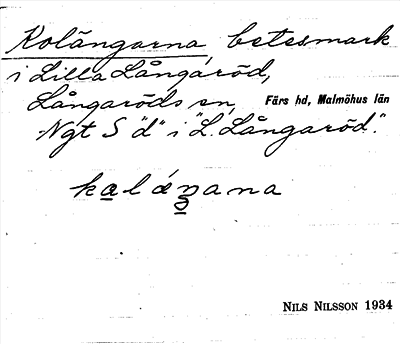 Kolängarna, betesmark
i Lilla Långaröd,
Långaröds sn, Färs hd, Malmöhus län
Ngt S "d" i "L. Långaröd".
NILS NILSSON 1934